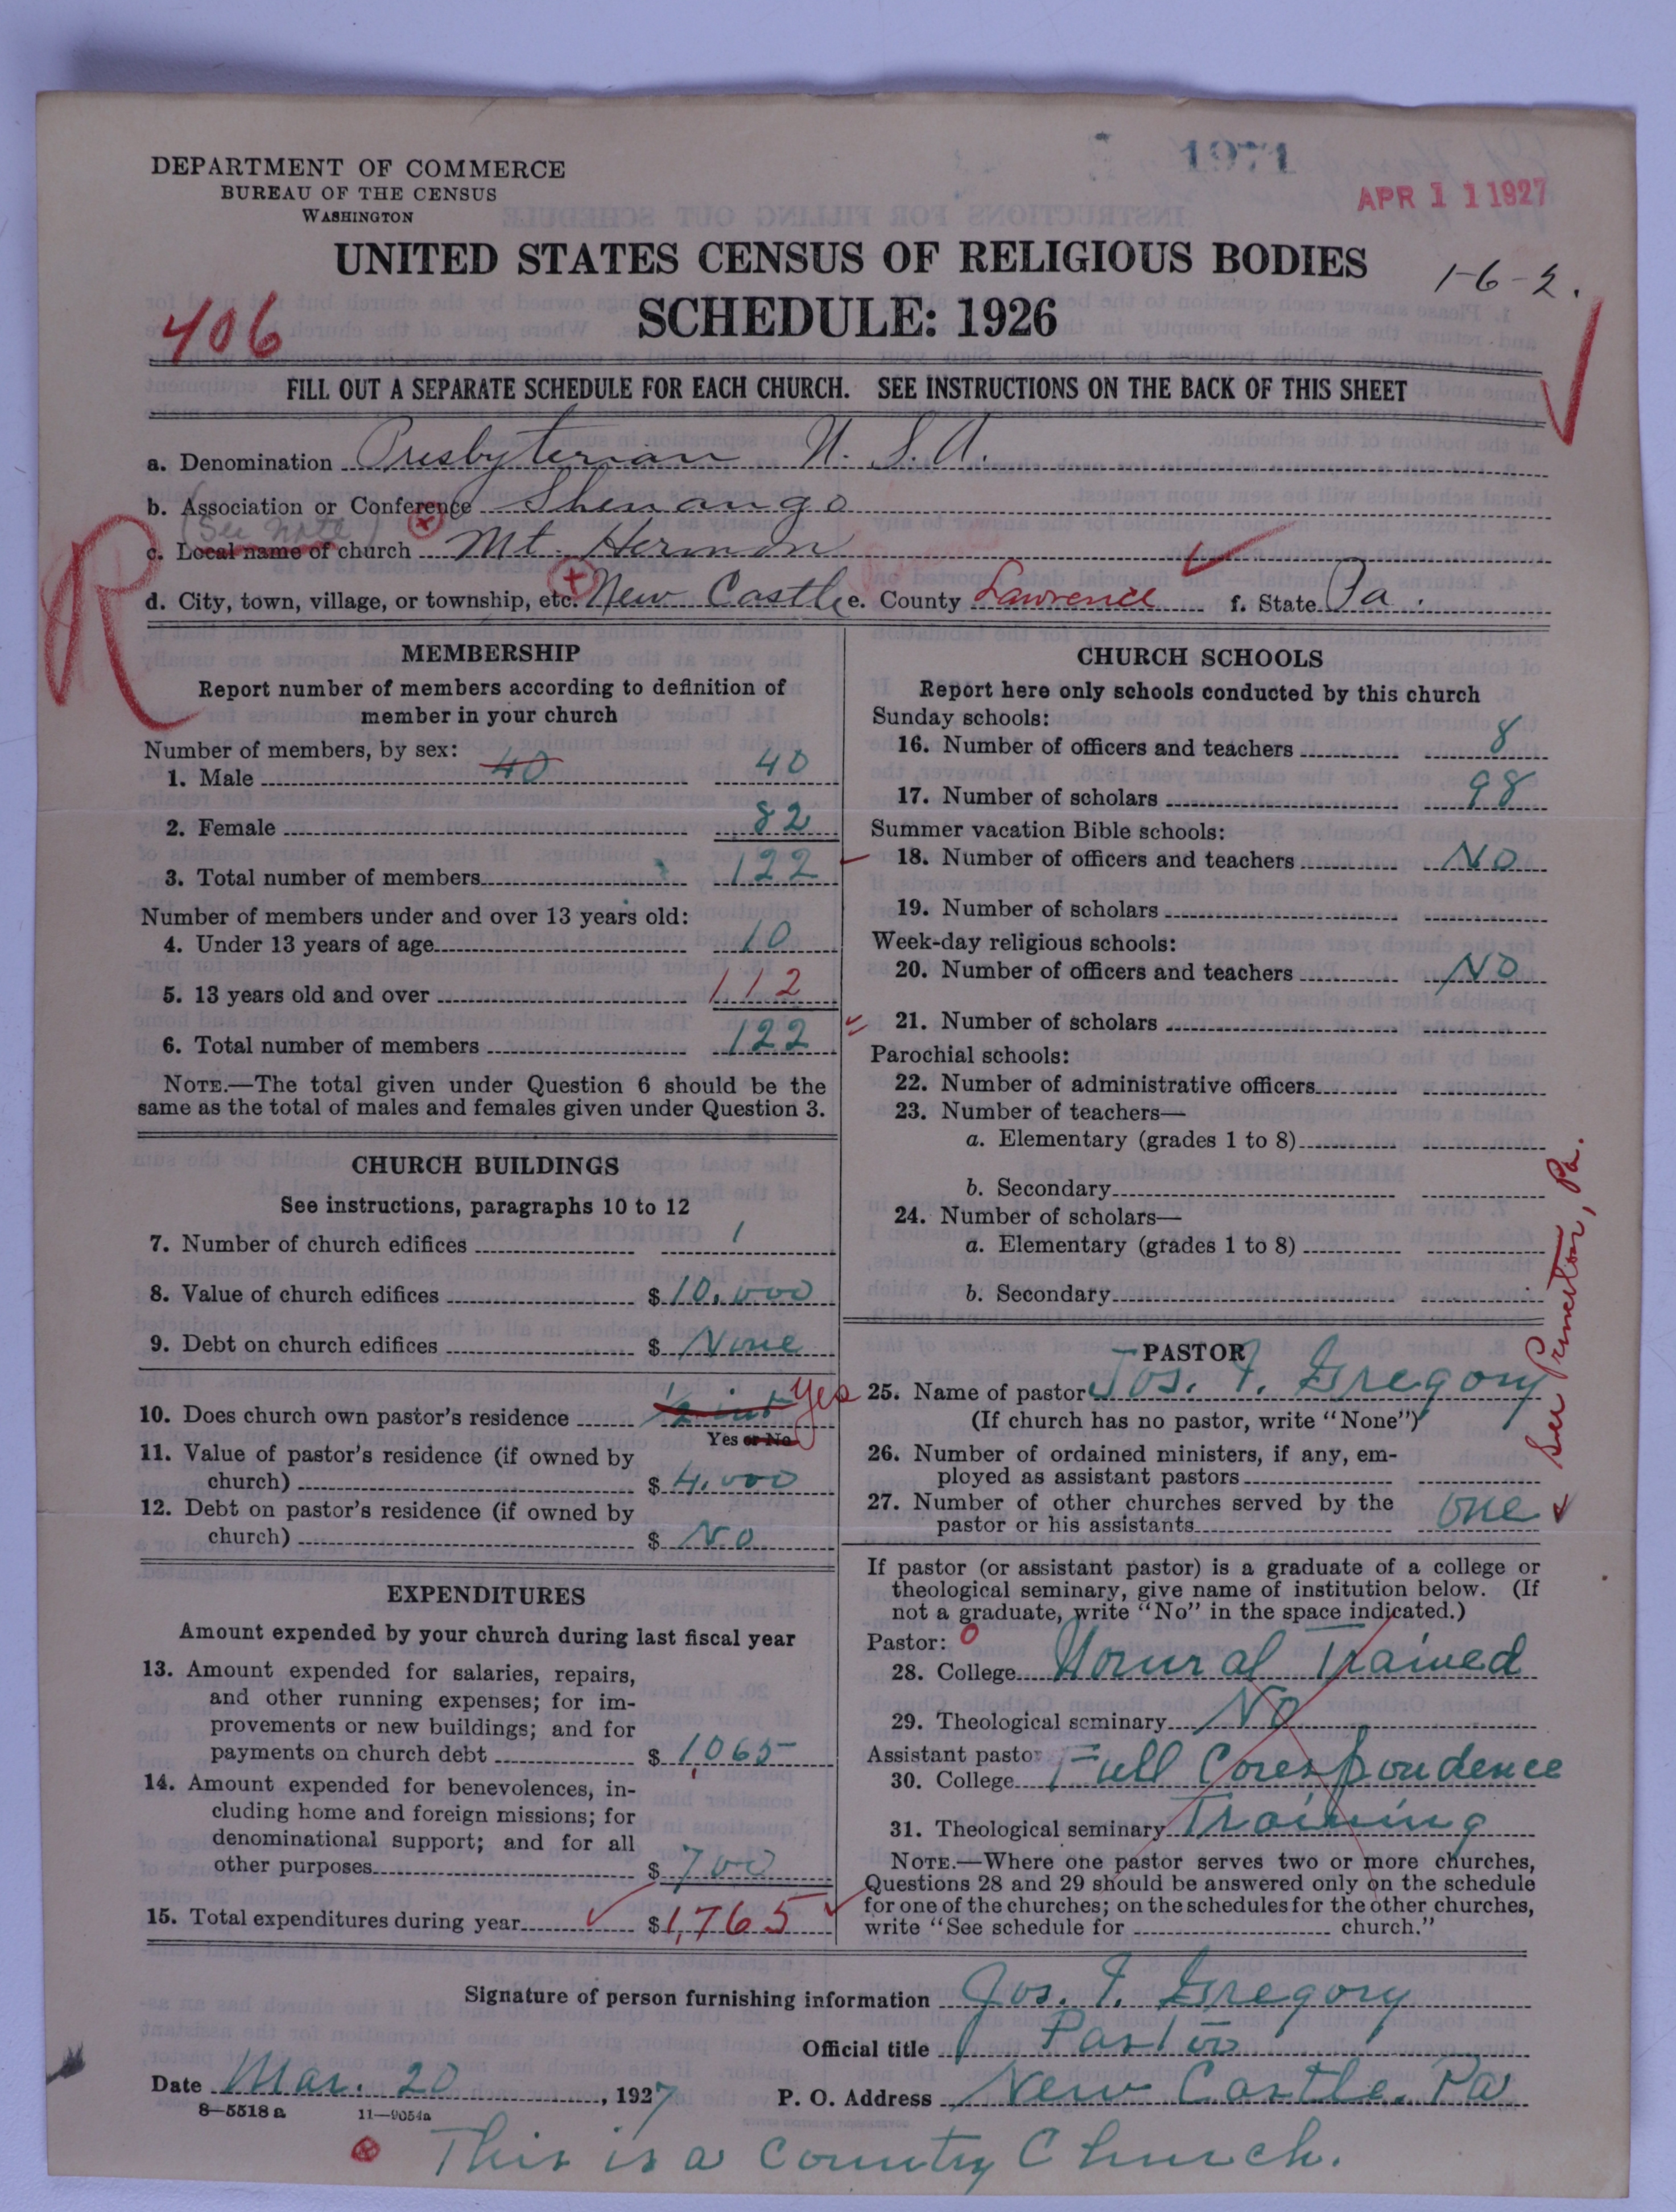 1971
DEPARTMENT OF COMMERCE
BUREAU OF THE CENSUS
WASHINGTON
APR 11 1927
UNITED STATES CENSUS OF RELIGIOUS BODIES
1-6-2.
406
SCHEDULE: 1926
FILL OUT A SEPARATE SCHEDULE FOR EACH CHURCH. SEE INSTRUCTIONS ON THE BACK OF THIS SHEET
a. Denomination Presbyterian U. S. A.
b. Association or Conference Shenango
(See note)
R
c. Local name of church Mt. Hermon
d. City, town, village, or township, etc. New Castle e. County Lawrence f. State Pa.
MEMBERSHIP
Report number of members according to definition of
member in your church
Number of members, by sex:
1. Male 40 40
2. Female 82
3. Total number of members 122
Number of members under and over 13 years old:
4. Under 13 years of age 10
5. 13 years old and over 112
6. Total number of members 122
NOTE.—The total given under Question 6 should be the
same as the total of males and females given under Question 3.
CHURCH BUILDINGS
See instructions, paragraphs 10 to 12
7. Number of church edifices 1
8. Value of church edifices $10,000
9. Debt on church edifices $ None
10. Does church own pastor's residence 1/2 int Yes
Yes or No
11. Value of pastor's residence (if owned by
church) $ 4,000
12. Debt on pastor's residence (if owned by
church) $ No
EXPENDITURES
Amount expended by your church during last fiscal year
13. Amount expended for salaries, repairs,
and other running expenses; for im-
provements or new buildings; and for
payments on church debt $ 1,065
14. Amount expended for benevolences, in-
cluding home and foreign missions; for
denominational support; and for all
other purposes $ 700
15. Total expenditures during year $1,765
CHURCH SCHOOLS
Report here only schools conducted by this church
Sunday schools:
16. Number of officers and teachers 8
17. Number of scholars 98
Summer vacation Bible schools:
18. Number of officers and teachers No
19. Number of scholars
Week-day religious schools:
20. Number of officers and teachers No
21. Number of scholars
Parochial schools:
22. Number of administrative officers
23. Number of teachers—
a. Elementary (grades 1 to 8)
b. Secondary
24. Number of scholars—
a. Elementary (grades 1 to 8)
b. Secondary
PASTOR
25. Name of pastor Jos. T. Gregory
(If church has no pastor, write "None")
26. Number of ordained ministers, if any, em-
ployed as assistant pastors
27. Number of other churches served by the
pastor or his assistants one
See Princeton, Pa.
If pastor (or assistant pastor) is a graduate of a college or
theological seminary, give name of institution below. (If
not a graduate, write "No" in the space indicated.)
Pastor: 0
28. College Normal Trained
29. Theological seminary No
Assistant pastor
30. College Full Corespondence
31. Theological seminary Training
NOTE.—Where one pastor serves two or more churches,
Questions 28 and 29 should be answered only on the schedule
for one of the churches; on the schedules for the other churches,
write "See schedule for church."
Signature of person furnishing information Jos. T. Gregory
Official title Pastor
Date Mar. 20, 1927 P. O. Address New Castle, Pa
8—5518 a 11—9054a
This is a Country Church.